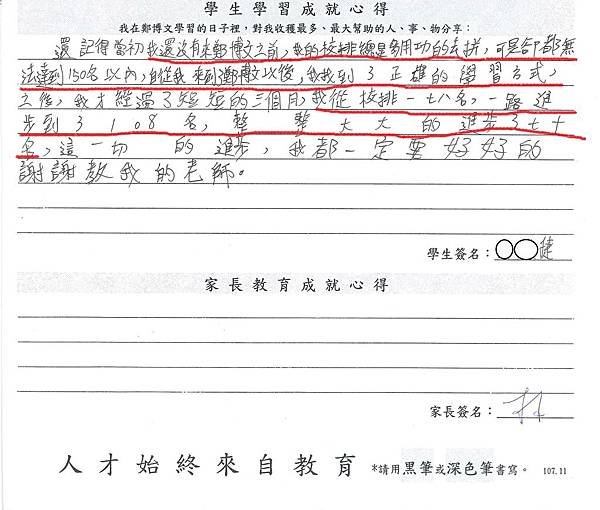 學生學習成就心得
我在鄭博文學習的日子裡，對我收穫最多、最大幫助的人、事、物分享：
還記得當初我還沒有來鄭博文之前，我的校排總是多用功的去拼，可是卻都無
法達到150名以內，自從我來到鄭博文以後，我找到了正確的學習方式，
之後，我才經過了短短的三個月，我從校排一七八名，一路進
步到了108名，整整大大的進步了七十
名，這一切的進步，我都一定要好好的
謝謝教我的老師。
學生簽名：〇〇健
家長教育成就心得
家長簽名：
人才始終來自教育 *請用黑筆或深色筆書寫。 107.11